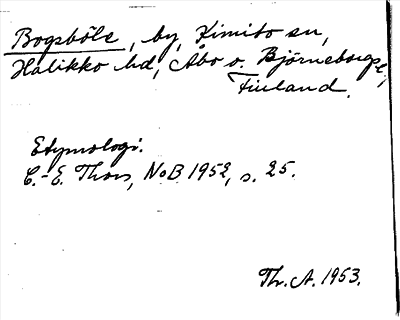 Bogsböle, by, Kimito sn,
Halikko hd, Åbo o. Björneborgs l,
Finland.
Etymologi:
C.-E. Thors, NoB 1952, s. 25.
Th. A. 1953.